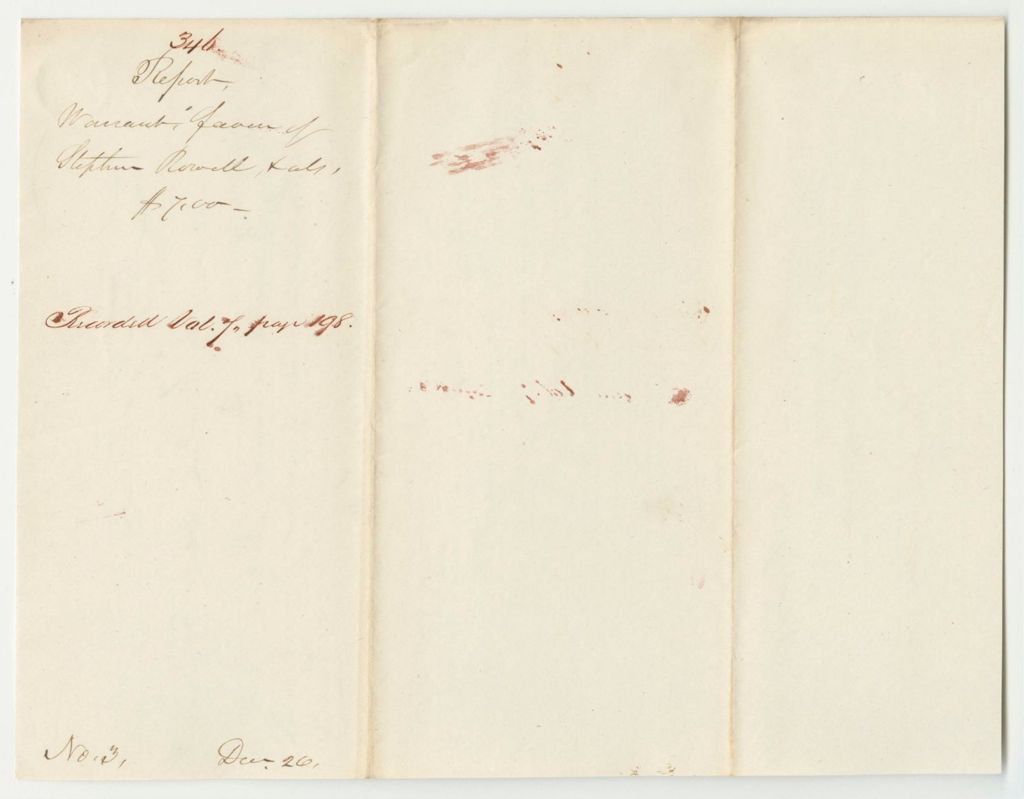 346.
Report,
Warrant, favour of
Stephen Rowell, & als,
$7.00 –
Recorded Vol. 7, page 198.
No. 3, Dec. 26,